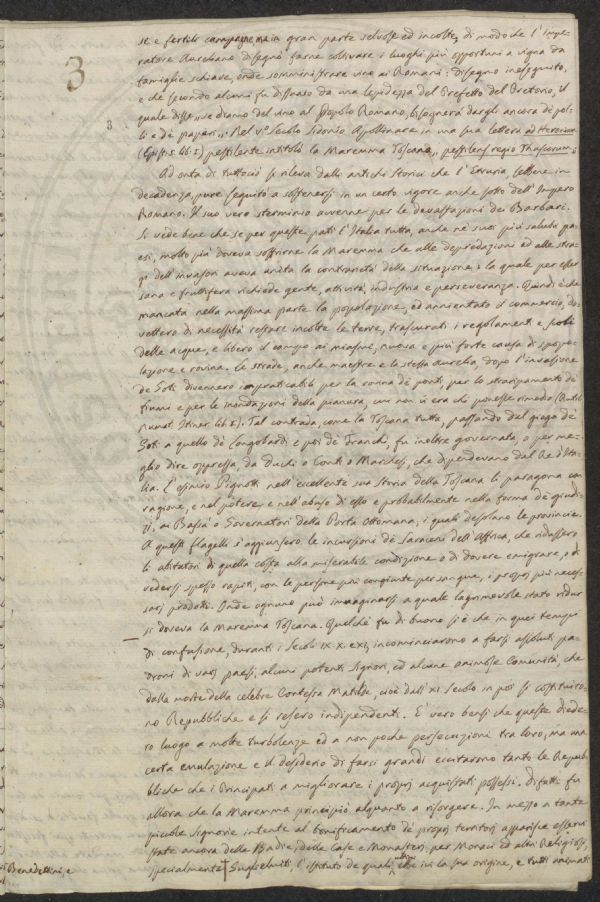 3
se e fertili campagne ma in gran parte selvose ed incolte, di modo che l'Impe-
ratore Aureliano disegnò farne coltivare i luoghi più opportuni a vigna da
famiglie schiave, onde somministrare vino ai Romani: disegno ineseguito,
e che secondo alcuni fu distolto da una lepidezza del Prefetto del Pretorio, il
quale disse, se diamo del vino al Popolo Romano, bisognerà dargli ancora de pol-
li e de paperi. Nel V.° Secolo Sidonio Apollinare in una sua lettera ad Heronium
3
(Epist. 5. lib. I) pestilente intitolò la Maremma Toscana, pestilens regio Thuscorum.
Ad onta di tuttociò si rileva dalli antichi Storici che l'Etruria, sebbene in
decadenza, pure seguitò a sostenersi in un certo vigore anche sotto dell'Impero
Romano. Il suo vero sterminio avvenne per le devastazioni dei Barbari.
Si vede bene che se per queste patì l'Italia tutta, anche ne' suoi più salubri pa-
esi, molto più doveva soffrirne la Maremma che alle depredazioni ed alle stra-
gi dell'invasori aveva unita la contrarietà della situazione: la quale per esser
sana e fruttifera richiede gente, attività, industria e perseveranza. Quindi è che
mancata nella massima parte la popolazione, ed annientato il commercio, do-
vettero di necessità restare incolte le terre, trascurati i regolamenti e
delle acque, e libero il campo ai miasmi, nuova e più forte causa di spopo-
lazione e rovina. Le strade, anche maestre e la stessa Aurelia, dopo l'invasione
de Goti divennero impraticabili per la rovina de ponti, per lo straripamento de
fiumi e per le inondazioni della pianura, cui non vi era chi ponesse rimedio (Rutil.
Numat. Itiner. lib. I). Tal contrada, come la Toscana tutta, passando dal giogo de
Goti a quello de Longobardi e poi de Franchi, fu inoltre governata, o per me-
glio dire oppressa, da Duchi o Conti o Marchesi, che dipendevano dal Re d'Ita-
lia. L'esimio Pignotti nell'eccellente sua Storia della Toscana li paragona con
ragione, e nel potere, e nell'abuso di esso e probabilmente nella forma de giudi-
zi, ai Bassà o Governatori della Porta Ottomana, i quali desolano le provincie.
A questi flagelli s'aggiunsero le incursioni de Saraceni dell'Affrica, che ridussero
li abitatori di quella costa alla miserabile condizione o di dovere emigrare, o di
vedersi spesso rapiti, con le persone più congiunte per sangue, i propri più neces-
sari prodotti. Onde ognuno può immaginarsi a quale lagrimevole stato ridur
si doveva la Maremma Toscana. Quelchè fu di buono si è che in quei tempi
di confusione, duranti i Secoli IX. X. e XI, incominciarono a farsi assoluti pa-
droni di varj paesi, alcuni potenti Signori, ed alcune animose Comunità, che
dalla morte della celebre Contessa Matilde, cioè dall'XI Secolo in poi si costituiro-
no Repubbliche e si resero indipendenti. È vero bensì che queste diede-
ro luogo a molte turbolenze ed a non poche persecuzioni tra loro, ma una
certa emulazione e il desiderio di farsi grandi eccitarono tanto le Repub-
bliche che i Principati a migliorare i proprj acquistati possessi. Difatti fu
allora che la Maremma principiò alquanto a risorgere. In mezzo a tante
piccole Signorie intente al bonificamento de proprj territorj apparisce esservi
state ancora delle Badie, delle Case e Monasteri per Monaci ed altri Religiosi,
specialmente † Guglielmiti l'istituto de quali ebbe ivi la sua origine, e tutti animati
Benedettini, e